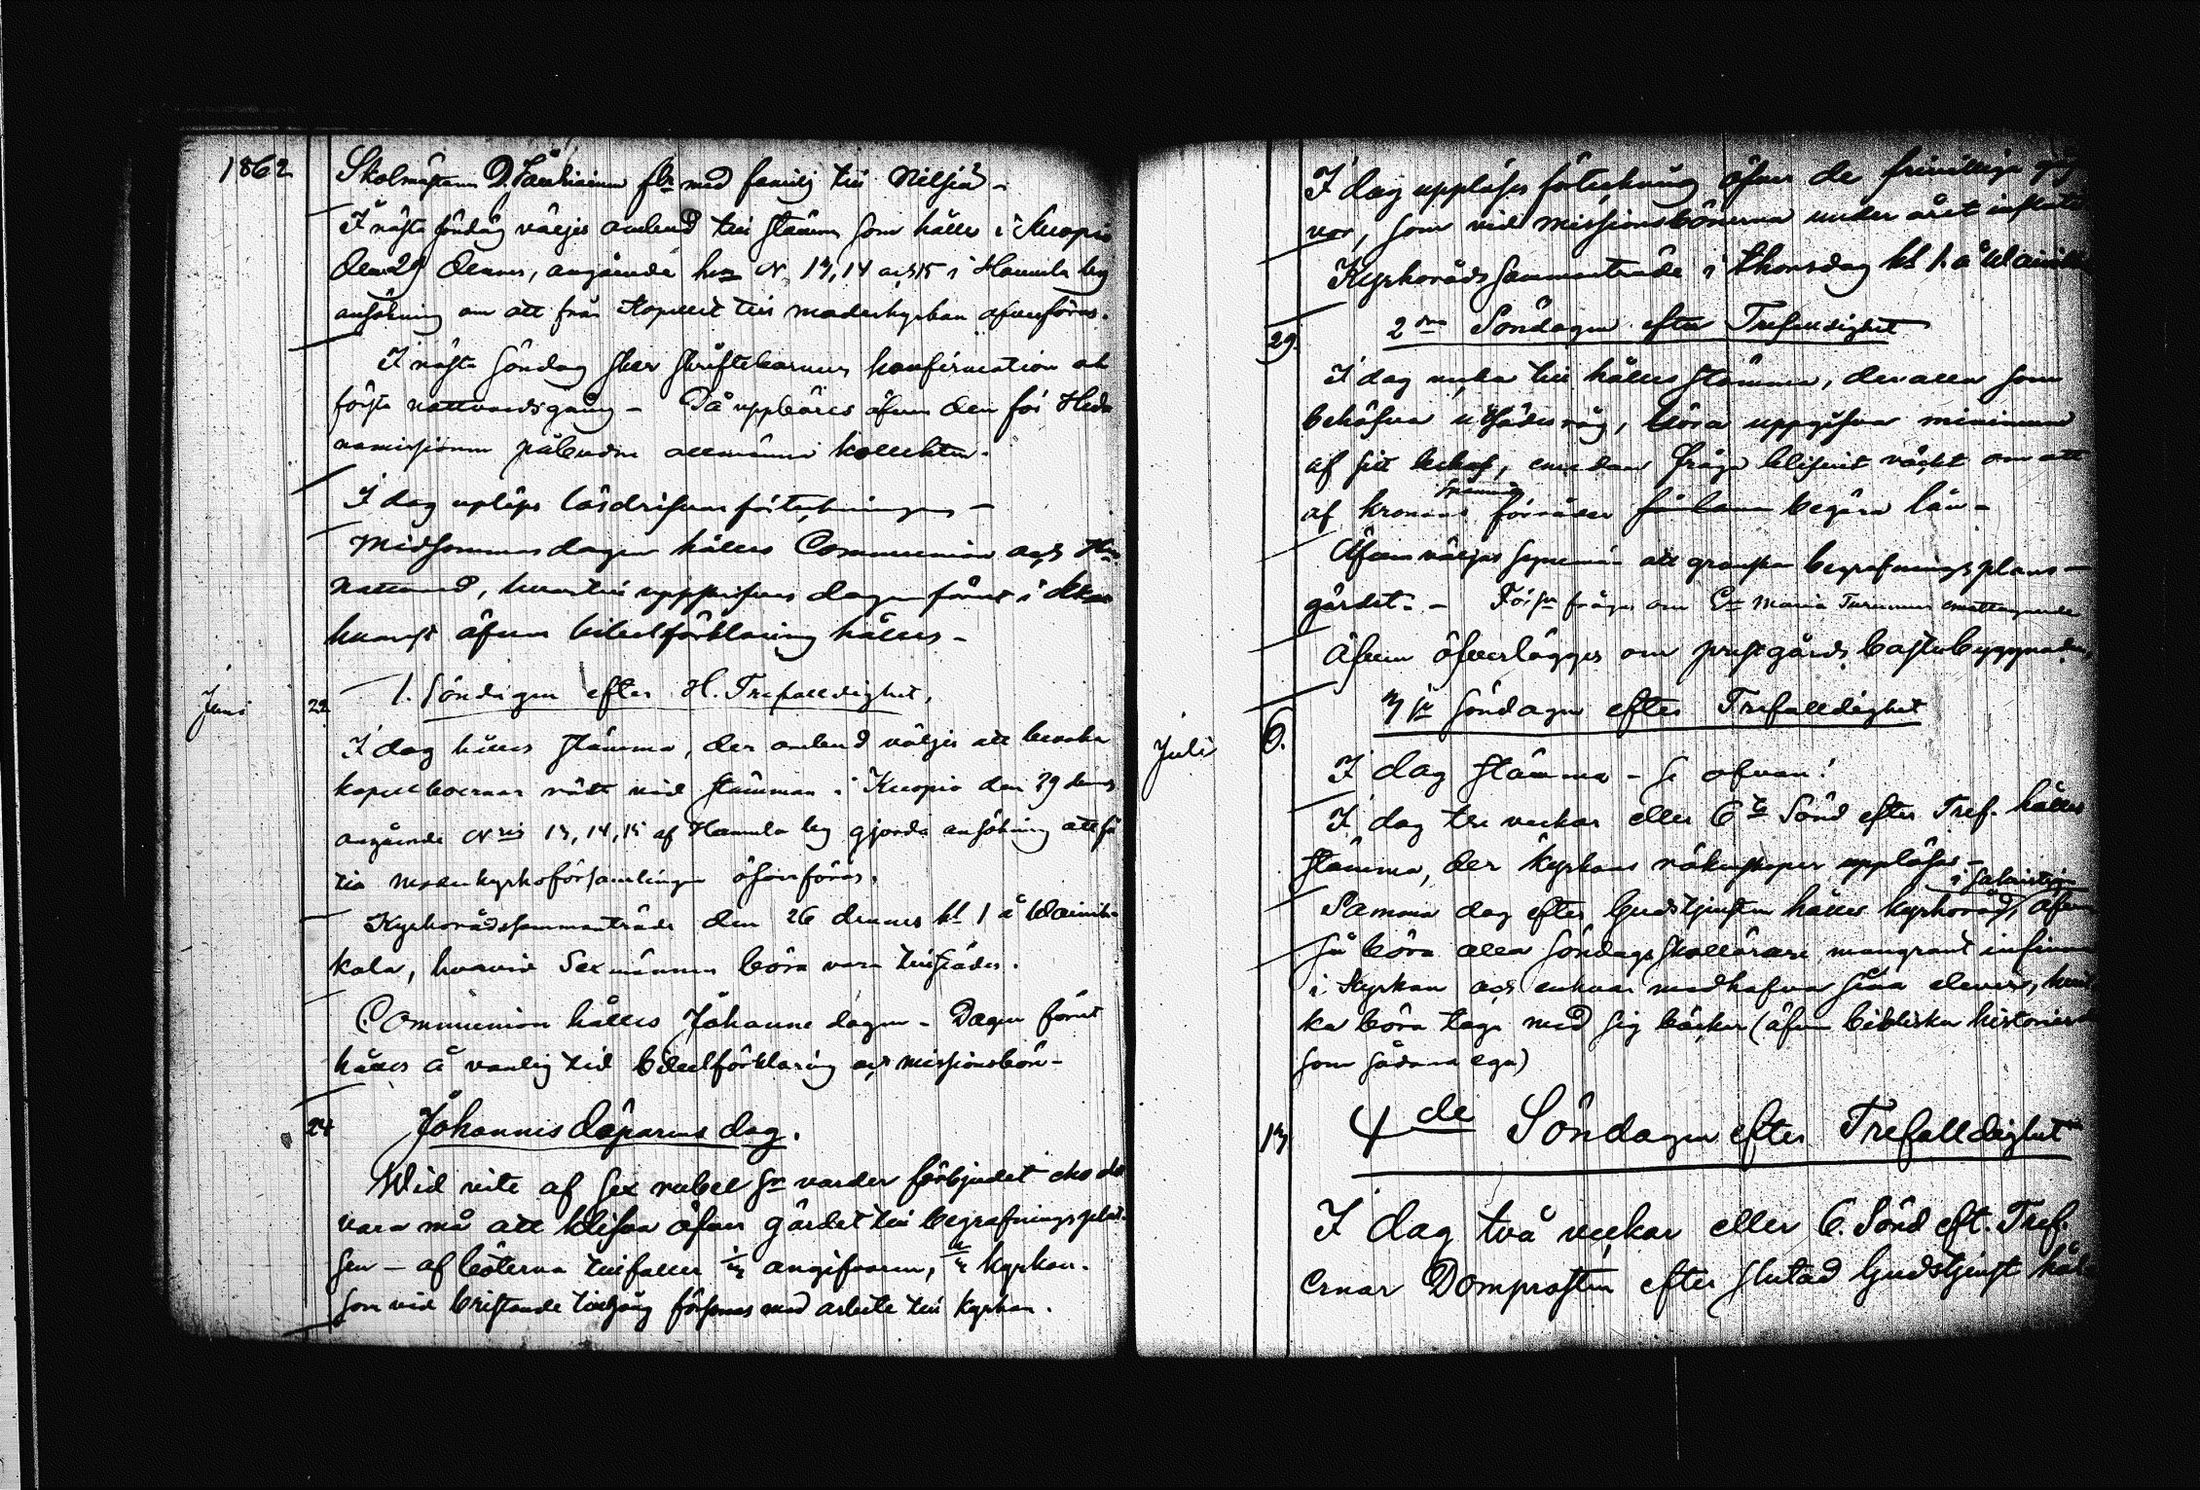 1862
Skolmästaren D. fltr med familj till Nilsiä -
I nästa söndag väljes ombud till stämma som hålles i Kuopio
den 29 dennes, angående hem N 13, 14 och 15 i Hamula by
ansökning om att från Kapellet till moderkyrkan öfverföras.
I nästa Söndag sker skriftebarnens konfirmation och
första nattvardsgång - Då uppbäres äfven den för Hed-
namissionen påbudna allmänna kollekten.
I dag upläses låsdrifvare förteckningen -
Midsommarsdagen hålles Communion och
Nattvard, hvartill uppskrifves dagen förut i
hvarest äfven bibelförklaring hålles -
Juni 22
1. Söndagen efter H. Trefalldighet.
I dag hålles stämma, der ombud väljes att bevaka
kapellboernas rätt vid stämman i Kuopio den 29 dennes
angående Nris 13, 14, 15 af Hamula by gjorda ansökning att få
till Moderkyrkoförsamlingen öfverföras.
Kyrkorådssammanträde den 26 dennes kl 1 å Wäinik-
kala, hvarvid Sexmännen böra vara tillstädes.
Communion hålles Johanne dagen - Dagen förut
hålles å vanlig tid bibelförklaring och missionsbön -
24
Johannis döparens dag.
Wid vite af sex rubel Sr varder förbjudet eho det
vara må att klifva öfver gärdet till begrafningsplat-
sen - af böterna tillfaller angifvaren, kyrkan.
som vid bristande tillgång försonas med arbete till Kyrkan.
I dag uppläses förteckning öfver de frivilliga gåf-
vor, som vid missionsbönerna under året influtit
Kyrkorådssammanträde i thorsdag kl 1. å Wäinikkala
29.
2dra Söndagen efter Trefalldighet
I dag vecka till hålles stämma, der alla som
behöfva utsädes råg, böra uppgifva minimum
af sitt behof, emedan fråga blifvit väckt om att
af kronans spannm. förråder begära lån -
Äfven väljes synemän att granska begrafningsplans-
gärdet. - Förs. fråga om Maria Turunens
Äfven öfverlägges om prestgårds bastubyggnaden,
Juli 6.
3dje Söndagen efter Trefalldighet
I dag stämma - se ofvan!
I dag tre veckor eller 6te Sönd efter Tref. hålles
stämma, der kyrkans räkenskaper uppläses -
Samma dag efter Gudstjensten hålles kyrkoråd, i Sakristian äfven
så böra alla söndagsskollärare mangrant infinna
i Kyrkan och enhvar medhafva sina elever, hvil-
ka böra taga med sig böcker (äfven bibliska historier
som sådana ega)
13
4de Söndagen efter Trefalldighet
I dag två veckor eller 6. Sönd eft. Tref.
ernar Domprosten efter slutad Gudstjenst hålla